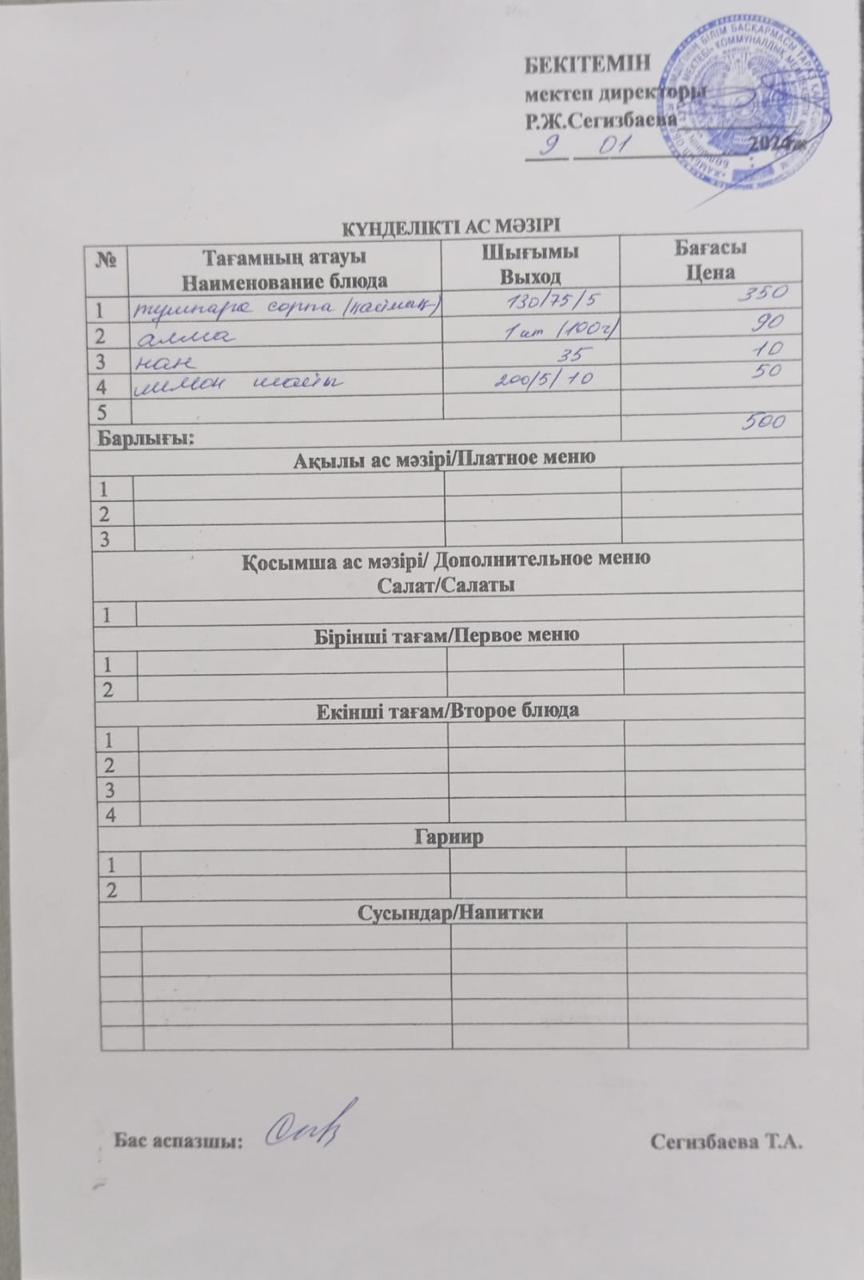 БЕКІТЕМІН
мектеп директоры
Р.Ж.Сегизбаева
9 01 2024ж
КҮНДЕЛІКТІ АС МӘЗІРІ
№ Тағамның атауы Наименование блюда Шығымы Выход Бағасы Цена
1 тушпара сорпа (қаймақ) 130/75/5 350
2 алма 1 шт (100г) 90
3 нан 35 10
4 лимон шайы 200/5/10 50
5
Барлығы: 500
Ақылы ас мәзірі/Платное меню
1
2
3
Қосымша ас мәзірі/ Дополнительное меню
Салат/Салаты
1
Бірінші тағам/Первое меню
1
2
Екінші тағам/Второе блюда
1
2
3
4
Гарнир
1
2
Сусындар/Напитки
Бас аспазшы: Сегизбаева Т.А.